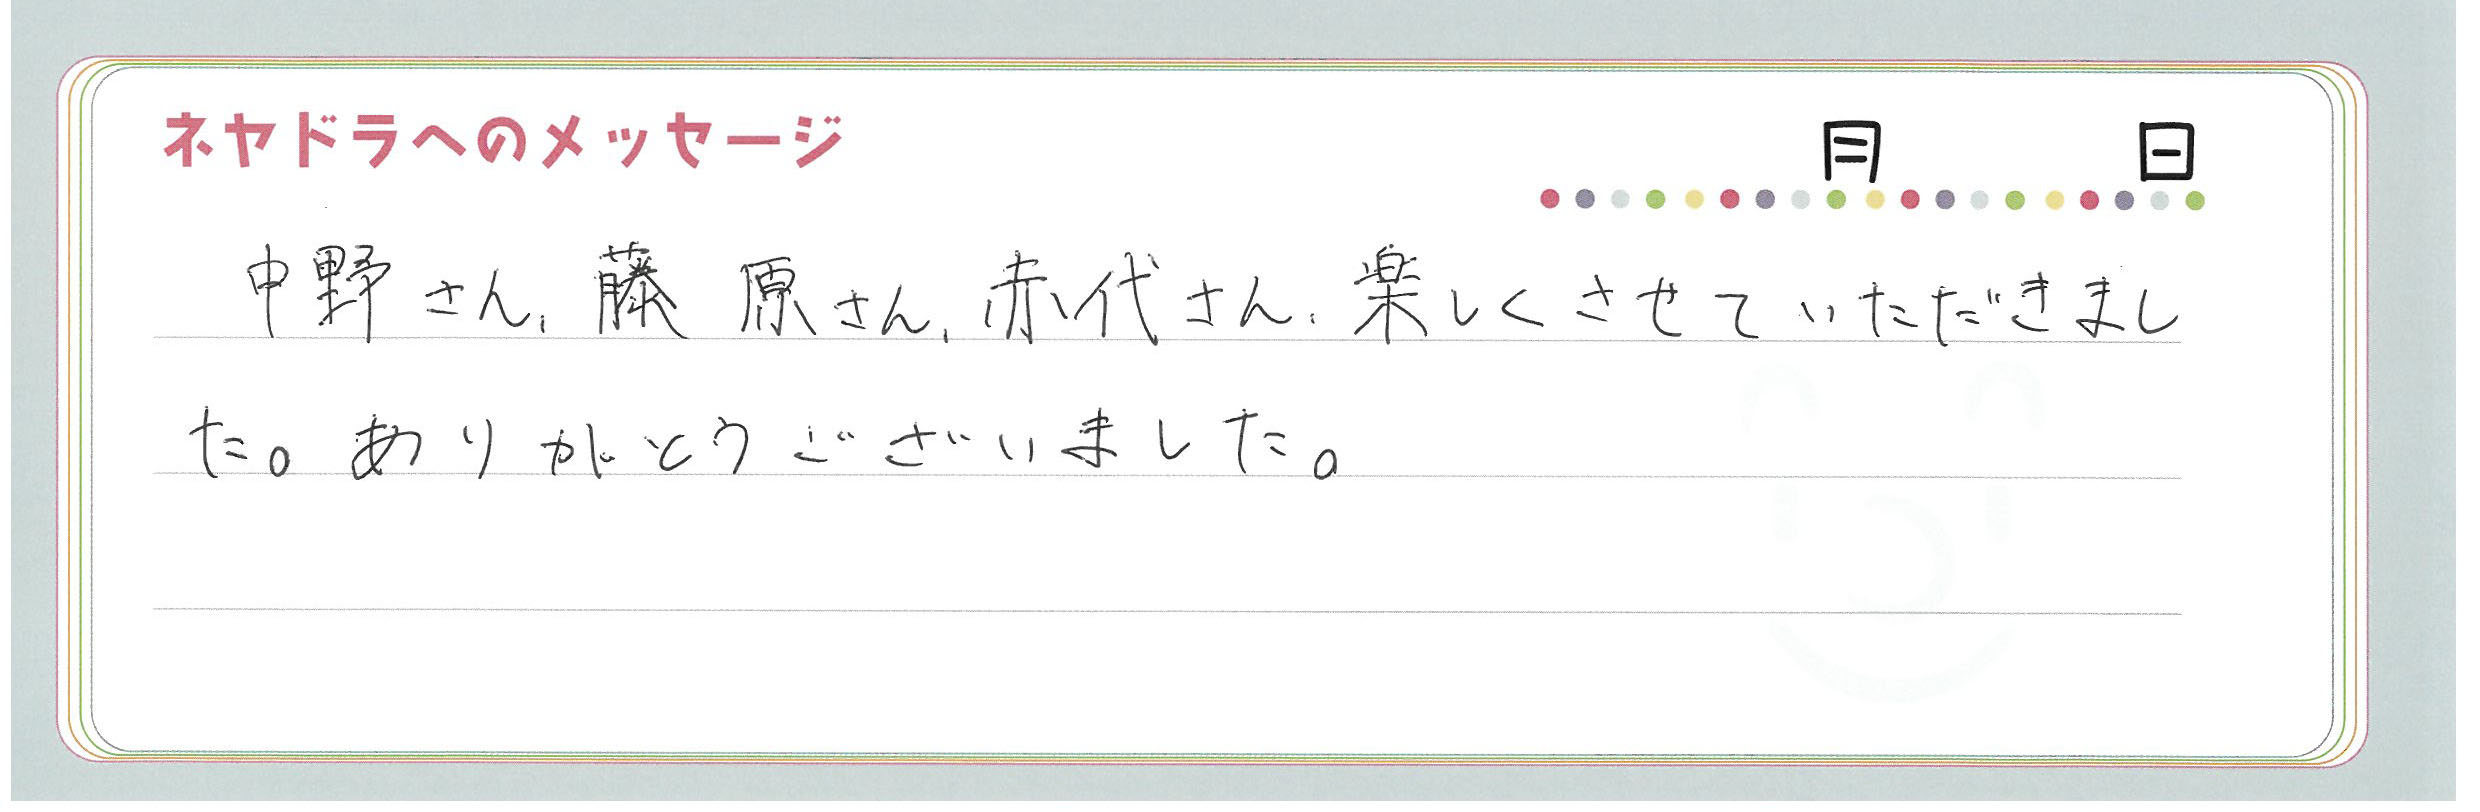 ネヤドラへのメッセージ
月 日
中野さん、藤原さん、赤代さん、楽しくさせていただきまし
た。ありがとうございました。